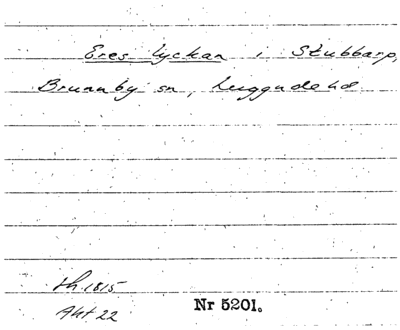 Eres lyckan i Stubbarp,
Brunnby sn, Luggude hd
Lh 1815
Akt 22
Nr 5201.